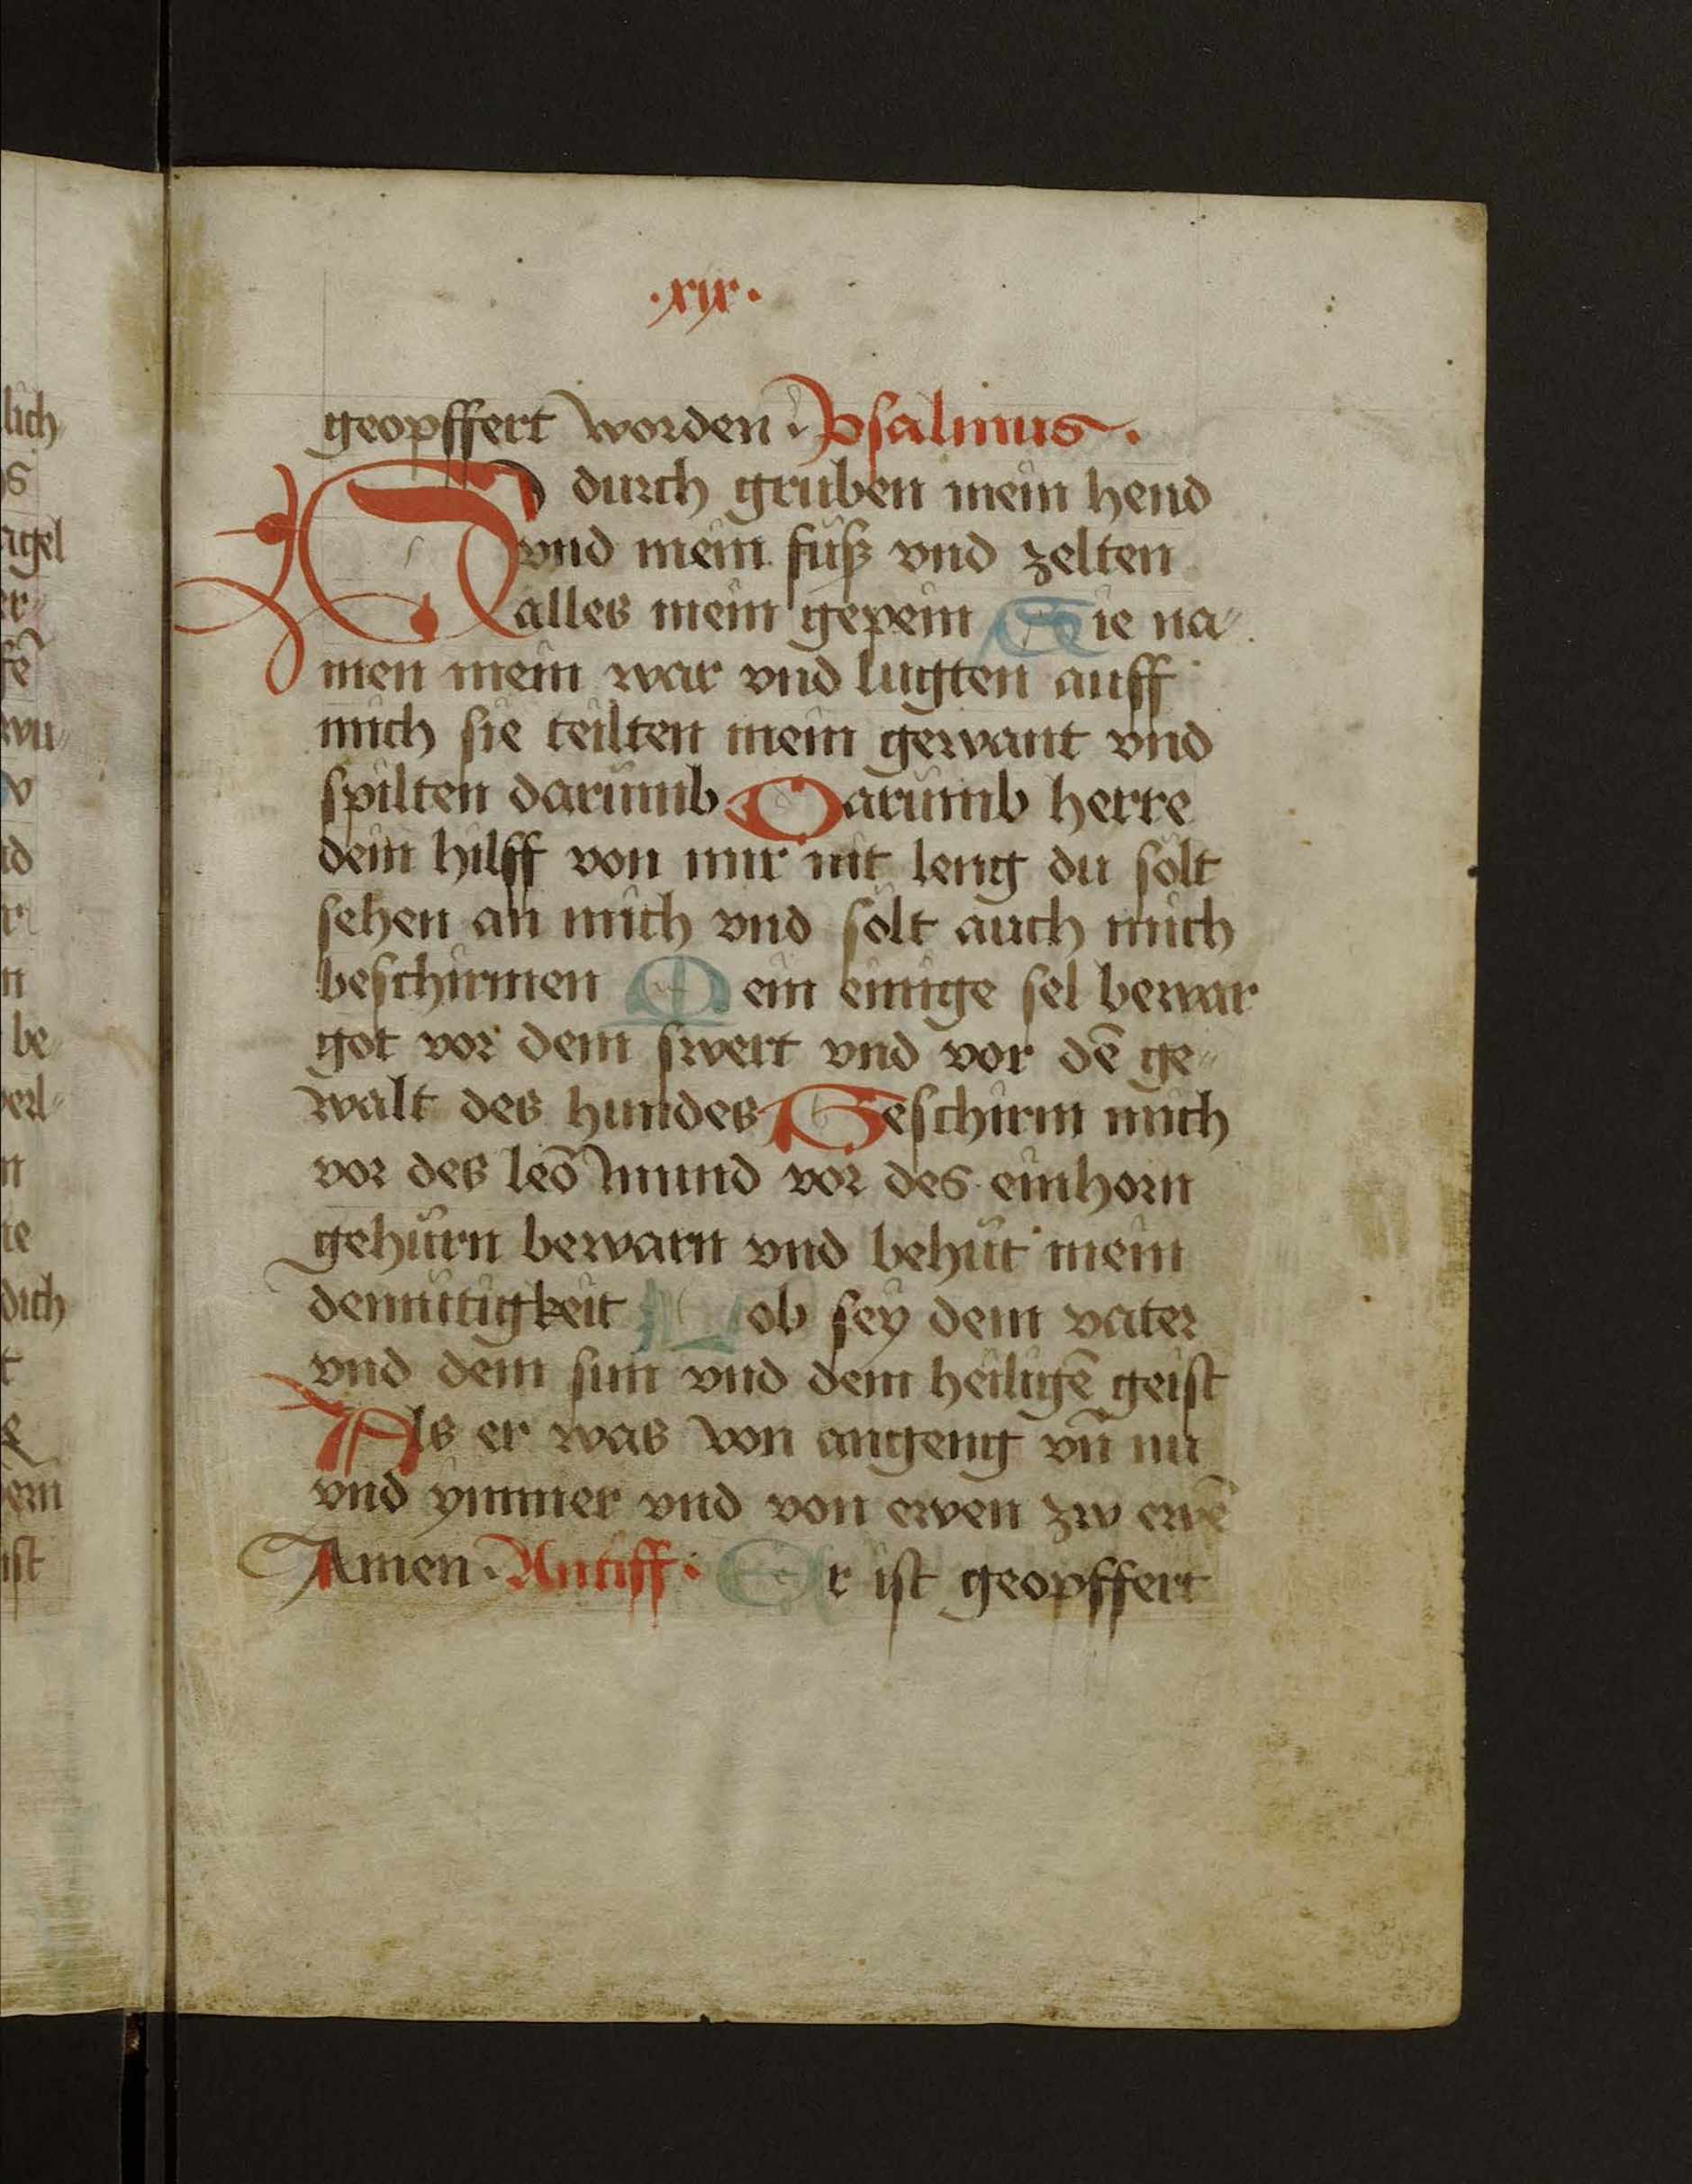 ·xix·
geopffert worden · Psalmus ·
Si durch gruben mein hend
vnd mein füsz vnd zelten
alles mein gepein Sie na〃
men mein war vnd lugten auff
mich sie teilten mein gewant vnd
spilten darümb Darümb herre
dein hilff von mir nit leng du sölt
sehen an mich vnd sölt auch mich
beschirmen Mein einige sel bewar
got vor dem swert vnd vor dē ge〃
walt des hundes Beschirm mich
vor des leō mund vor des einhorn
gehürn bewarn vnd behüt mein
demütigkeit Lob sey dem vater
vnd dem sun vnd dem heiligē geist
Als er was von angeng vn̄ nu
vnd ymmer vnd von ewen zw ewē
Amen · Antiff · Er ist geopffert